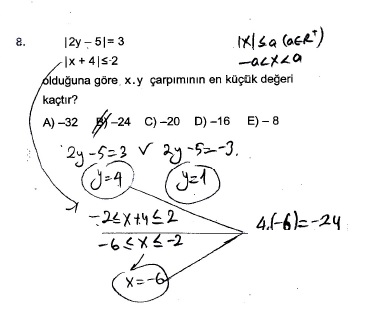 8. |2y – 5| = 3
|x + 4| ≤ 2
|x| ≤ a (a∈R⁺)
-a<x<a
olduğuna göre, x.y çarpımının en küçük değeri
kaçtır?
A) –32 B) –24 C) –20 D) –16 E) – 8
2y-5=3 ∨ 2y-5=-3.
y=4 y=1
-2≤x+4≤2
-6≤x≤-2
x=-6
4.(-6)=-24